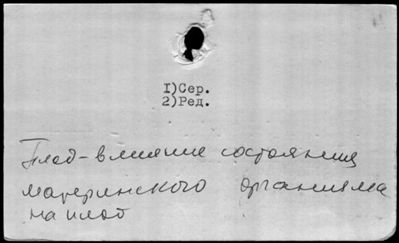 1)Сер.
2)Ред.
Плод - влияние состояния
материнского организма
на плод